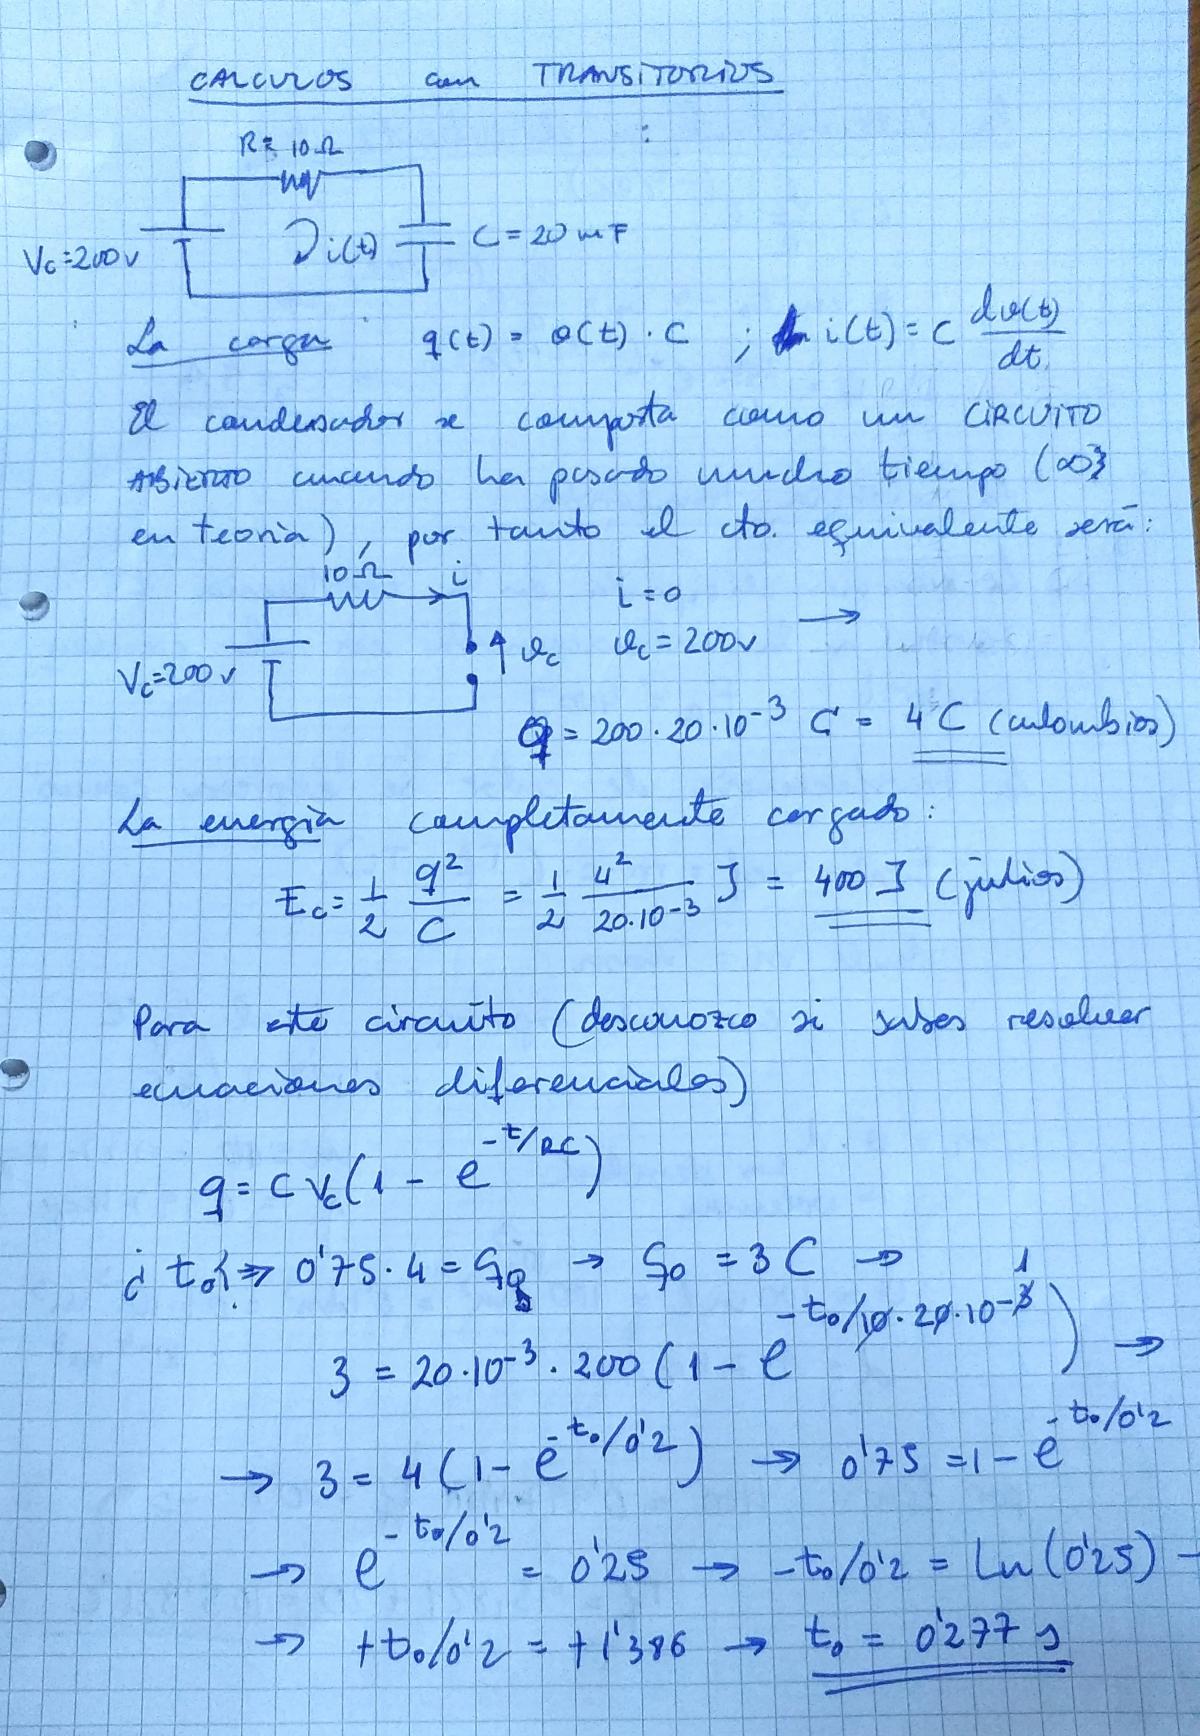 CALCULOS con TRANSITORIOS
R = 10 Ω
Vc=200v
i(t)
C = 20 mF
La carga q(t) = v(t) · C ; i(t) = C dv(t)/dt
El condensador se comporta como un CIRCUITO
ABIERTO cuando ha pasado mucho tiempo (∞
en teoría), por tanto el cto. equivalente será:
10 Ω i
i = 0
Vc=200v
vc
vc = 200v →
q = 200·20·10⁻³ C = 4 C (culombios)
La energía completamente cargado:
Ec = 1/2 q²/C = 1/2 4²/20·10⁻³ J = 400 J (julios)
Para este circuito (desconozco si sabes resolver
ecuaciones diferenciales)
q = C Vc (1 - e^-t/RC)
¿ t₀? ⇒ 0'75 · 4 = q₀ → q₀ = 3 C →
3 = 20·10⁻³ · 200 (1 - e^-t₀/10·20·10⁻¹) →
→ 3 = 4 (1 - e^-t₀/0'2) → 0'75 = 1 - e^-t₀/0'2
→ e^-t₀/0'2 = 0'25 → -t₀/0'2 = Ln (0'25) -
→ +t₀/0'2 = +1'386 → t₀ = 0'277 s